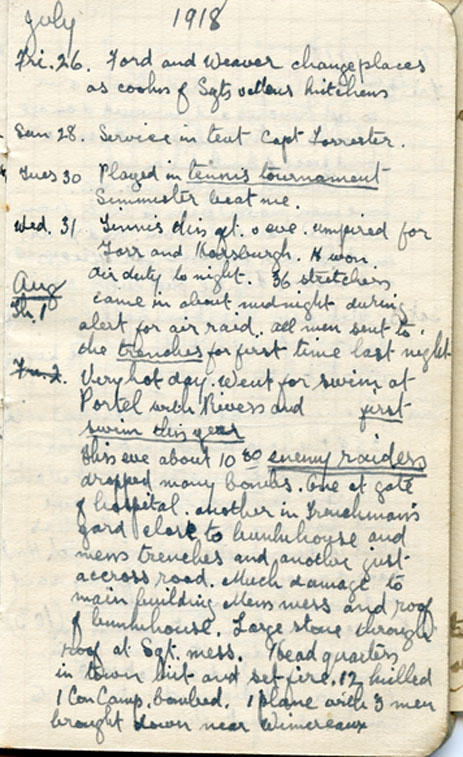 July 1918
Fri. 26. Ford and Weaver change places
as cooks of Sgts & mens kitchens
Sun 28. Service in tent Capt Forrester.
Tues 30 Played in tennis tournament
Simmister beat me.
Wed. 31 Tennis this aft. & eve. umpired for
Torr and Horsburgh. H won
air duty to night. 36 stretchers
Aug
Th. 1 came in about midnight during
alert for air raid. all men sent to
the trenches for first time last night
Fri 2. Very hot day. Went for swim at
Portel with Rivers and first
swim this year
This eve about 10 30 enemy raiders
dropped many bombs. One at gate
of hospital. another in Frenchman's
yard close to bunkhouse and
mens trenches and another just
accross road. Much damage to
main building Mens mess and roof
of bunkhouse. Large stone through
roof at Sgt. mess. Head quarters
in town hit and set fire. 12 killed
1 Con Camp. bombed. 1 plane with 3 men
brought down near Wimereaux